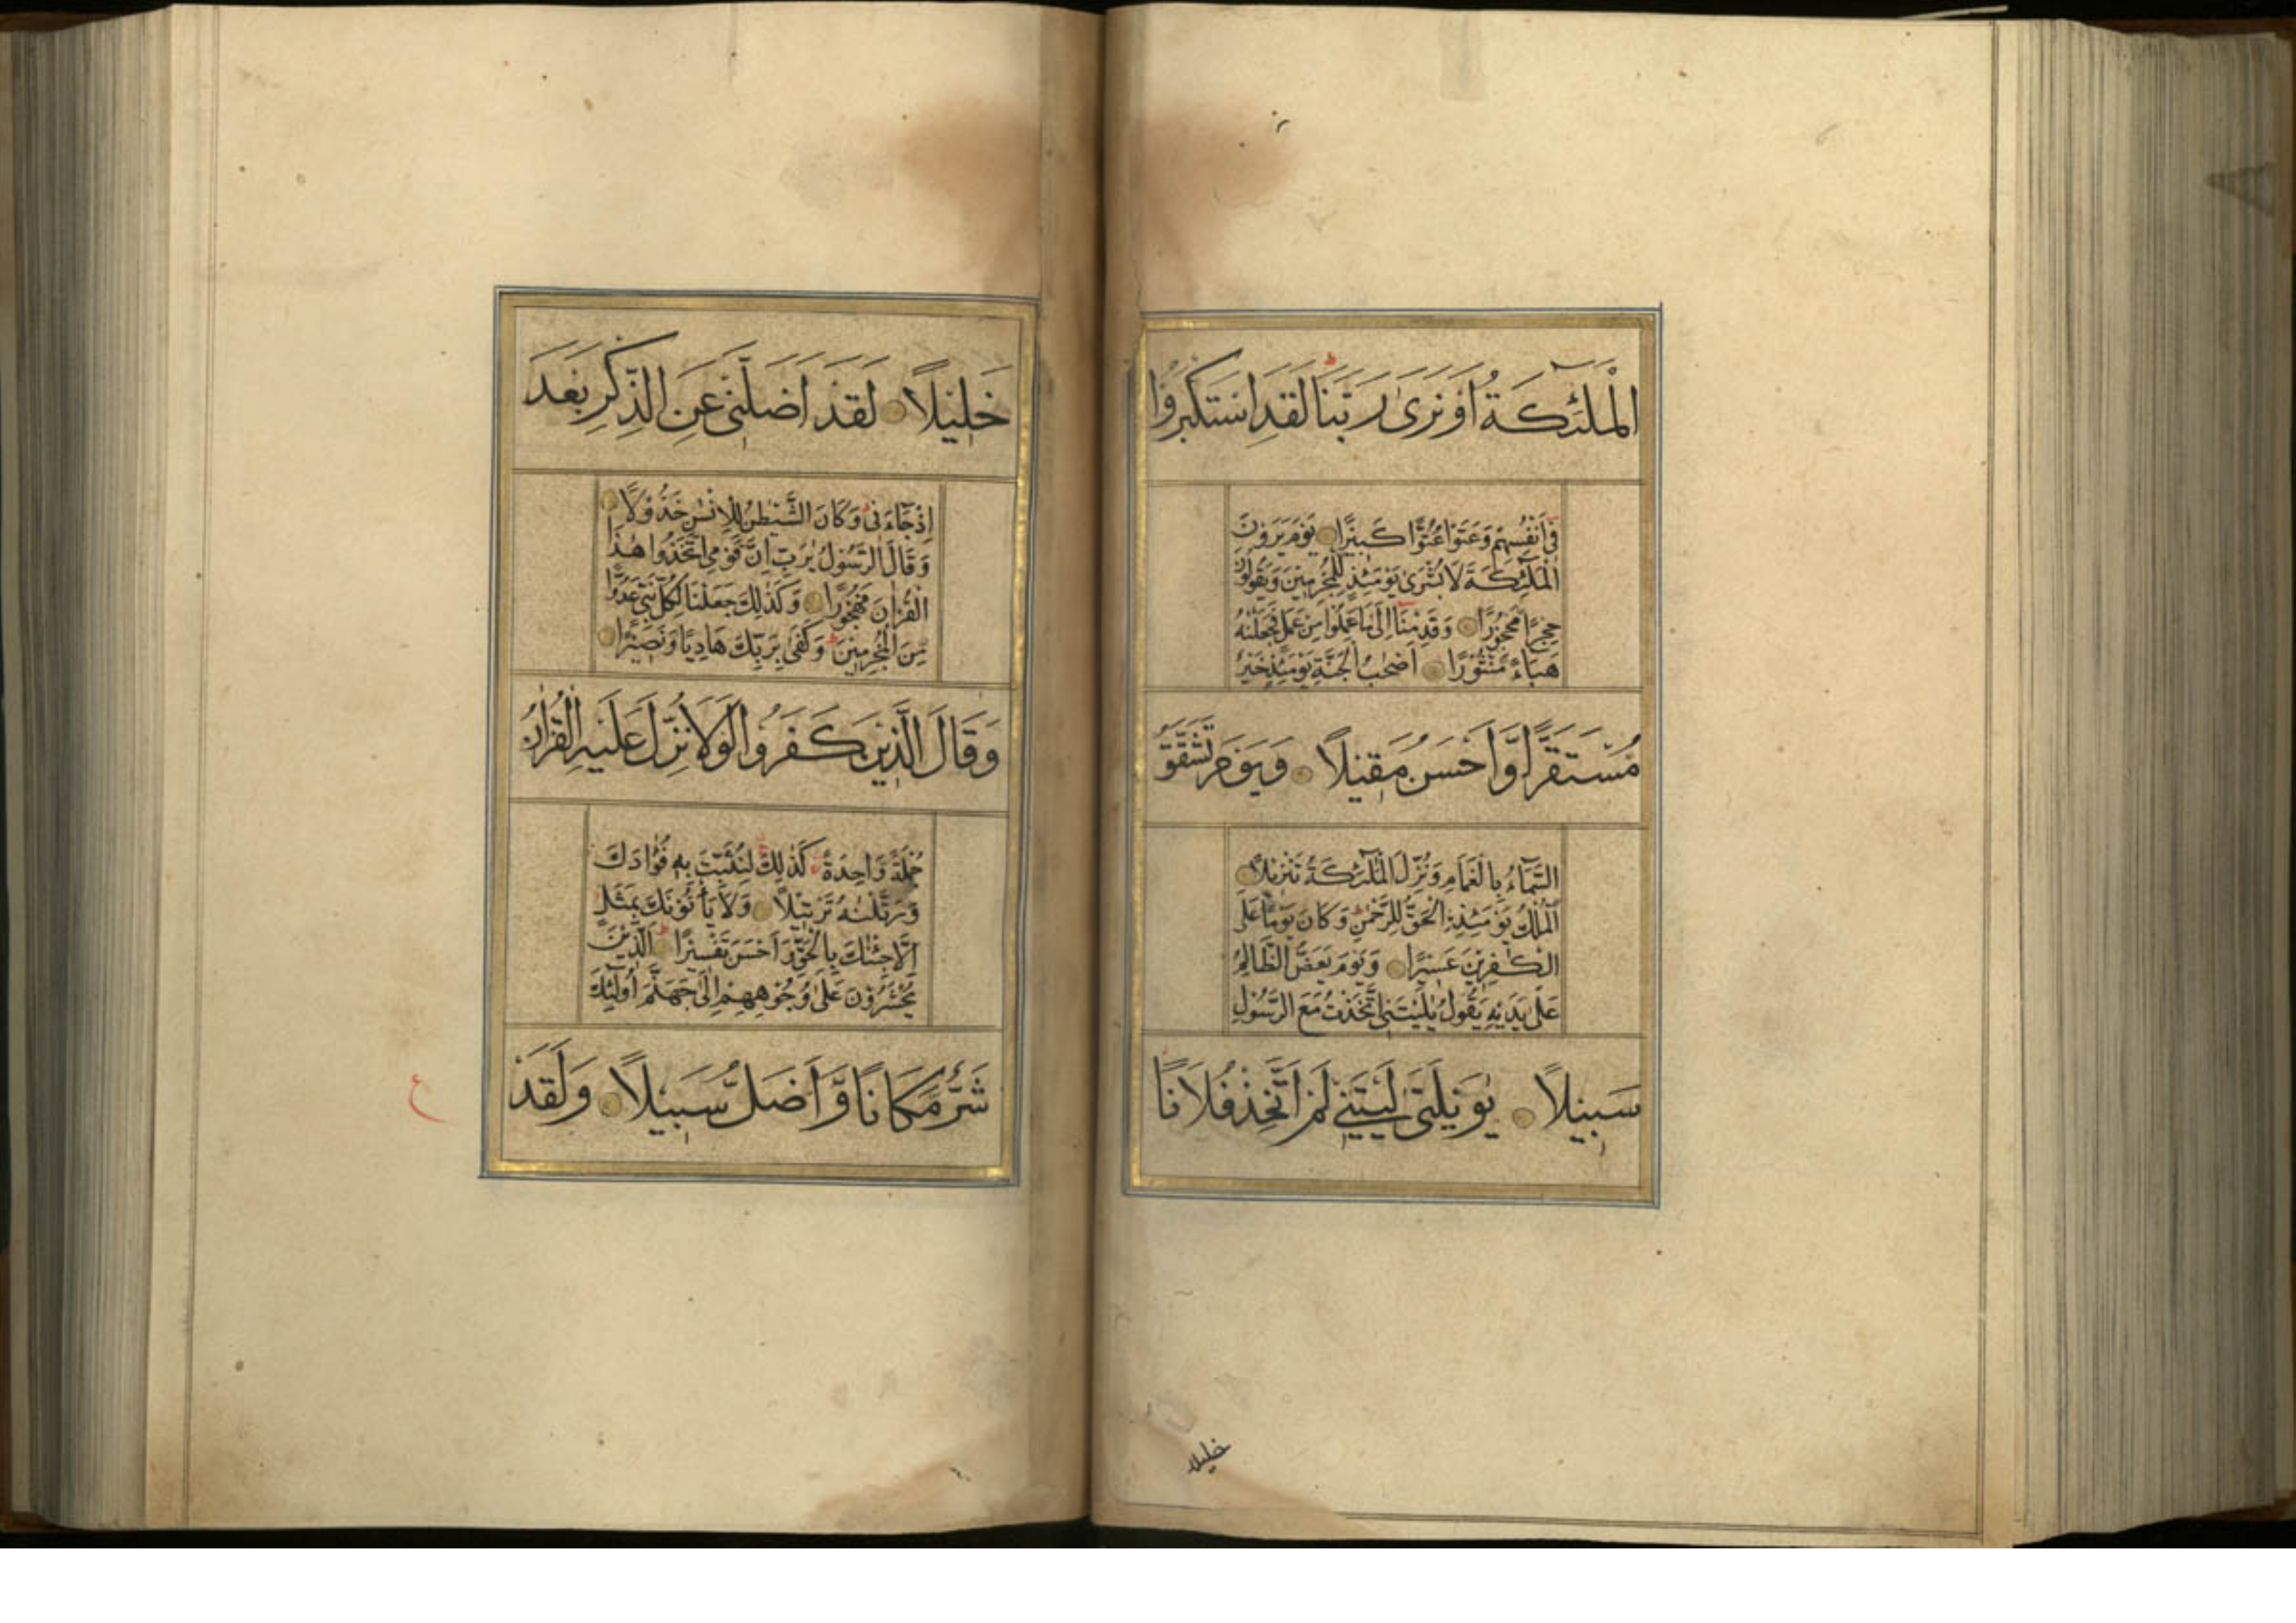 الْمَلٰٓئِكَةُ اَوْ نَرٰى رَبَّنَا لَقَدِ اسْتَكْبَرُوْا
فِىْٓ اَنْفُسِهِمْ وَعَتَوْا عُتُوًّا كَبِيْرًا يَوْمَ يَرَوْنَ
الْمَلٰٓئِكَةَ لَا بُشْرٰى يَوْمَئِذٍ لِّلْمُجْرِمِيْنَ وَيَقُوْلُوْنَ
حِجْرًا مَّحْجُوْرًا وَقَدِمْنَآ اِلٰى مَا عَمِلُوْا مِنْ عَمَلٍ فَجَعَلْنٰهُ
هَبَآءً مَّنْثُوْرًا اَصْحٰبُ الْجَنَّةِ يَوْمَئِذٍ خَيْرٌ
مُّسْتَقَرًّا وَّاَحْسَنُ مَقِيْلًا وَيَوْمَ تَشَقَّقُ
السَّمَآءُ بِالْغَمَامِ وَنُزِّلَ الْمَلٰٓئِكَةُ تَنْزِيْلًا
اَلْمُلْكُ يَوْمَئِذِۨ الْحَقُّ لِلرَّحْمٰنِ وَكَانَ يَوْمًا عَلَى
الْكٰفِرِيْنَ عَسِيْرًا وَيَوْمَ يَعَضُّ الظَّالِمُ
عَلٰى يَدَيْهِ يَقُوْلُ يٰلَيْتَنِى اتَّخَذْتُ مَعَ الرَّسُوْلِ
سَبِيْلًا يٰوَيْلَتٰى لَيْتَنِىْ لَمْ اَتَّخِذْ فُلَانًا
خليلا
خَلِيْلًا لَقَدْ اَضَلَّنِىْ عَنِ الذِّكْرِ بَعْدَ
اِذْ جَآءَنِىْ وَكَانَ الشَّيْطٰنُ لِلْاِنْسٰنِ خَذُوْلًا
وَقَالَ الرَّسُوْلُ يٰرَبِّ اِنَّ قَوْمِى اتَّخَذُوْا هٰذَا
الْقُرْاٰنَ مَهْجُوْرًا وَكَذٰلِكَ جَعَلْنَا لِكُلِّ نَبِىٍّ عَدُوًّا
مِّنَ الْمُجْرِمِيْنَ وَكَفٰى بِرَبِّكَ هَادِيًا وَّنَصِيْرًا
وَقَالَ الَّذِيْنَ كَفَرُوْا لَوْلَا نُزِّلَ عَلَيْهِ الْقُرْاٰنُ
جُمْلَةً وَّاحِدَةً كَذٰلِكَ لِنُثَبِّتَ بِهٖ فُؤَادَكَ
وَرَتَّلْنٰهُ تَرْتِيْلًا وَلَا يَأْتُوْنَكَ بِمَثَلٍ
اِلَّا جِئْنٰكَ بِالْحَقِّ وَاَحْسَنَ تَفْسِيْرًا اَلَّذِيْنَ
يُحْشَرُوْنَ عَلٰى وُجُوْهِهِمْ اِلٰى جَهَنَّمَ اُولٰٓئِكَ
شَرٌّ مَّكَانًا وَّاَضَلُّ سَبِيْلًا وَلَقَدْ
ع